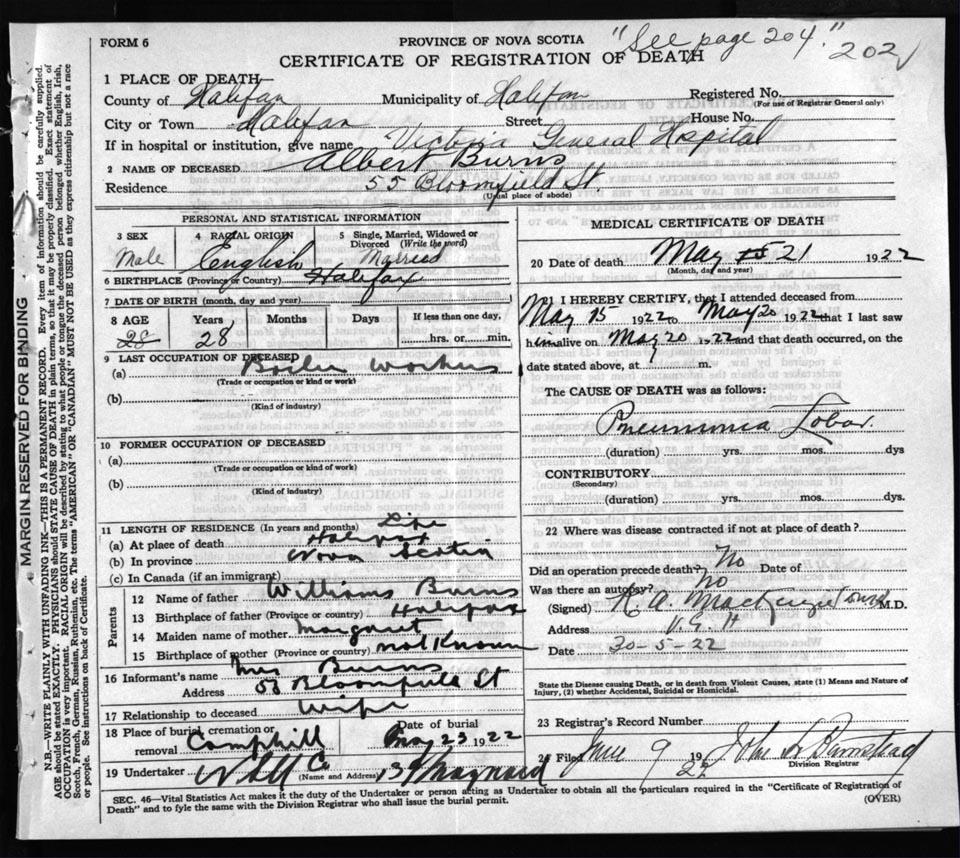 FORM 6
PROVINCE OF NOVA SCOTIA
"See page 204." 202
CERTIFICATE OF REGISTRATION OF DEATH
1 PLACE OF DEATH
County of Halifax Municipality of Halifax Registered No.
(For use of Registrar General only)
City or Town Halifax Street House No.
If in hospital or institution, give name Victoria General Hospital
2 NAME OF DECEASED Albert Burns
Residence 55 Bloomfield St.
(Usual place of abode)
PERSONAL AND STATISTICAL INFORMATION
3 SEX 4 RACIAL ORIGIN 5 Single, Married, Widowed or Divorced (Write the word)
Male English Married
6 BIRTHPLACE (Province or Country) Halifax
7 DATE OF BIRTH (month, day and year)
8 AGE Years Months Days If less than one day,
28 28 hrs. or min.
9 LAST OCCUPATION OF DECEASED
(a) Boiler Workers
(Trade or occupation or kind or work)
(b)
(Kind of industry)
10 FORMER OCCUPATION OF DECEASED
(a)
(Trade or occupation or kind of work)
(b)
(Kind of industry)
11 LENGTH OF RESIDENCE (In years and months) Life
(a) At place of death Halifax
(b) In province Nova Scotia
(c) In Canada (if an immigrant)
Parents
12 Name of father Williams Burns
13 Birthplace of father (Province or country) Halifax
14 Maiden name of mother Margaret
15 Birthplace of mother (Province or country) not Known
16 Informant's name Mrs Burns
Address 53 Bloomfield St
17 Relationship to deceased Wife
18 Place of burial, cremation or removal Camphill
Date of burial May 23 1922
19 Undertaker (Name and Address) Maynard
MEDICAL CERTIFICATE OF DEATH
20 Date of death May 21 1922
(Month, day and year)
I HEREBY CERTIFY, that I attended deceased from
May 15 1922 to May 20 1922 that I last saw
him alive on May 20 1922 and that death occurred, on
date stated above, at m.
The CAUSE OF DEATH was as follows:
Pneumonia Lobar.
(duration) yrs. mos. dys
CONTRIBUTORY
(Secondary)
(duration) yrs. mos. dys.
22 Where was disease contracted if not at place of death?
Did an operation precede death? No Date of
Was there an autopsy? No
(Signed) M.D.
Address V. G. H
Date 30-5-22
State the Disease causing Death, or in death from Violent Causes, state (1) Means and Nature of
Injury, (2) whether Accidental, Suicidal or Homicidal.
23 Registrar's Record Number
24 Filed June 9 1922
Division Registrar
SEC. 46—Vital Statistics Act makes it the duty of the Undertaker or person acting as Undertaker to obtain all the particulars required in the "Certificate of Registration of
Death" and to fyle the same with the Division Registrar who shall issue the burial permit.
(OVER)
MARGIN RESERVED FOR BINDING
N.B.—WRITE PLAINLY WITH UNFADING INK—THIS IS A PERMANENT RECORD. Every item of information should be carefully supplied.
AGE should be stated EXACTLY. PHYSICIANS should STATE CAUSE OF DEATH in plain terms, so that it may be properly classified. Exact statement of
OCCUPATION is very important. RACIAL ORIGIN will be described by stating to what people or tongue the deceased person belongs, whether English, Irish,
Scotch, French, German, Russian, Ruthenian, etc. The terms "AMERICAN" or "CANADIAN" MUST NOT BE USED as they express citizenship but not a race
or people. See instructions on back of Certificate.